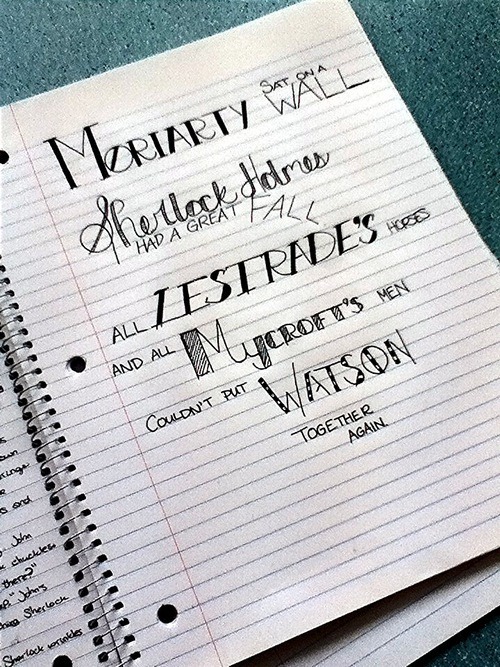 MORIARTY SAT ON A WALL.
Sherlock Holmes
HAD A GREAT FALL
ALL LESTRADE'S HORSES
AND ALL MYCROFT'S MEN
COULDN'T PUT WATSON
TOGETHER
AGAIN.
John
chuckles
there?"
John's
Sherlock
Sherlock wrinkles